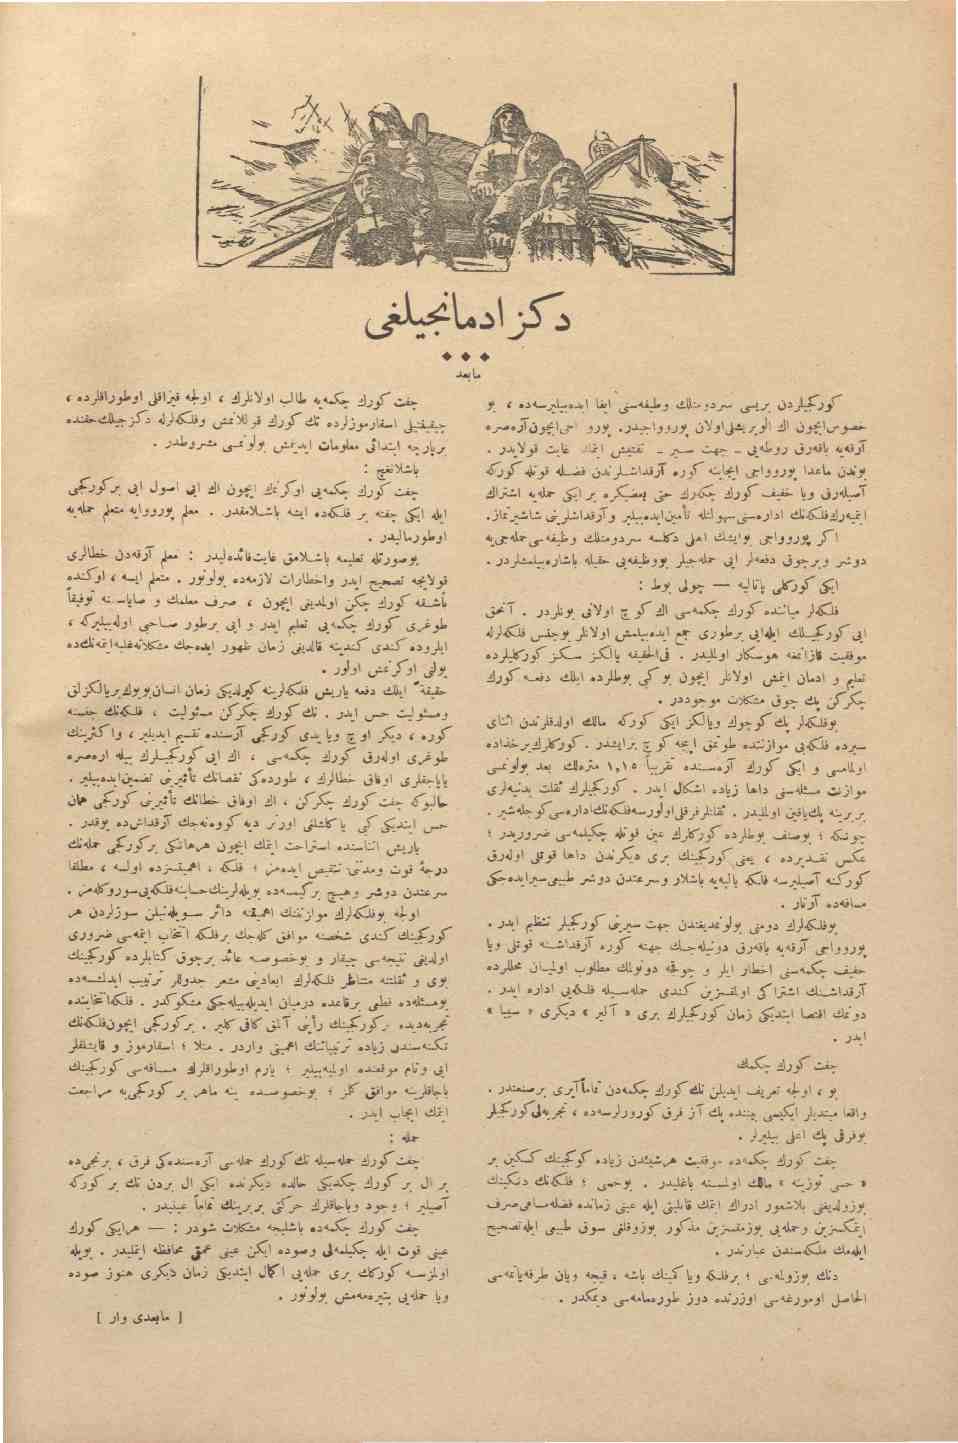 دكز ادمانجیلغی
مابعد
كوركجیلردن بریسی سردومنلك وظیفه‌سنی ایفا ایده‌بیلیرسه‌ده ، بو
خصوص ایچون اك الویریشلی اولان پوروواجیدر.
آرقه‌یه باقه‌رق روطه‌یی ـ جهت سیر ـ تفتیش ایتمك غایت قولایدر .
بوندن ماعدا پوروواجی ایجابنه كوره آرقداشلرندن فضله قوتله كوركه
آصیله‌رق ویا خفیف كورك چكه‌رك حتی بعضیكره بر ایكی حمله‌یه اشتراك
ایتمیه‌رك فلكه‌نك اداره‌سنی سهولتله تأمین ایده‌بیلیر و آرقداشلرینی شاشیرتماز.
اكر پوروواجی بو ایشك اهلی دكلسه سردومنلك وظیفه‌سی حمله‌جی‌یه
دوشر و برچوق دفعه‌لر ایی حمله‌جیلر بو وظیفه‌یی حقیله باشاره‌بیلمشلردر .
ایكی كوركلی پالیه — چولی بوط :
فلكه‌لر میاننده كورك چكمه‌سی اك كوچ اولانی بونلردر . آنجق
ایی كوركجیلك ایله ایی بر طوری جمع ایده‌بیلمش اولانلر بو جنس فلكه‌لرله
موفقیت قازانمغه هوسكار اولملیدر . فی‌الحقیقه یالكز سكز كوركلیلرده
تعلیم و ادمان ایتمش اولانلر ایچون بو كبی بوطلرده ایلك دفعه كورك
چكركن پك چوق مشكلات موجوددر .
بو فلكه‌لر پك كوچوك و یالكز ایكی كوركه مالك اولدقلرندن اثنای
سیرده فلكه‌یی موازنتده طوتمق ایجه كوچ بر ایشدر . كوركلرك بر خذاده
اولمامسی و ایكی كورك آره‌سنده تقریباً ١,١٥ متره‌لك بعد بولونمسی
موازنت مسئله‌سنی داها زیاده اشكال ایدر . كوركجیلرك ثقلت بدنیه‌لری
بربرینه پك یاقین اولملیدر . ثقلتلر فرقلی اولورسه فلكه‌نك اداره‌سی كوجله‌شیر .
چونكه ؛ بو صنف بوطلرده كوركلرك عین قوتله چكیلمه‌سی ضروریدر ؛
عكس تقدیرده ، یعنی كوركجینك بری دیكرندن داها قوتلی اوله‌رق
كوركنه آصیلیرسه فلكه یالپه‌یه باشلار و سرعتدن دوشر طبیعی سیر ایده‌جكی
مسافه‌ده آزتار .
بو فلكه‌لرك دومنی بولونمدیغندن جهت سیرینی كوركجیلر تنظیم ایدر .
پوروواجی آرقه‌یه باقه‌رق دونیله‌جك جهته كوره آرقداشنه قوتلی ویا
خفیف چكمه‌سنی اخطار ایلر و چوقجه دونولمك مطلوب اولمیان محللرده
آرقداشنك اشتراكی اولمقسزین كندی حمله‌سیله فلكه‌یی اداره ایدر .
دونمك اقتضا ایتدیكی زمان كوركجیلرك بری « آلبر » دیكری « سییا »
ایدر .
چفت كورك چكمك
بو ، اولجه تعریف ایدیلن تك كورك چكمه‌دن تماماً آیری بر صنعتدر .
واقعا مبتدیلر ایكیسی بیننده پك آز فرق كورورلرسه‌ده ، تجربه‌لی كوركجیلر
بو فرقی پك اعلی بیلیرلر .
چفت كورك چكمه‌ده موفقیت هرشیئدن زیاده كوركجینك كسكین بر
« حسی توزینه » مالك اولمسنه باغلیدر . بو حسی ؛ فلكه‌نك دنكینك
بوزولدیغنی بلاشعور ادراك ایتمك قابلیتی ایله عینی زمانده فضله مساعی صرف
ایتمكسزین و حمله‌یی بوزمقسزین مذكور بوزوقلقی سوق طبیعی ایله تصحیح
ایله‌مك ملكه‌سندن عبارتدر .
دنك بوزولمه‌سی ؛ بر فلكه ویا كمینك باشه ، قیجه و یان طرفه یاتمه‌سی
الحاصل اومورغه‌سی اوزرنده دوز طورمامه‌سی دیمكدر .
چفت كورك چكمه‌یه طالب اولانلرك ، اولجه قیزاقلی اوطوراقلرده ،
چیفیقینیلی اسقارموزلرده تك كورك قوللانمش و فلكه‌لرله دكزجیلك حقنده
بر پارچه ابتدائی معلومات ایدینمش بولونمسی مشروطدر .
باشلانغیچ :
چفت كورك چكمه‌یی اوكرنمك ایچون اك ایی اصول ایی بر كوركجی
ایله ایكی چفته بر فلكه‌ده ایشه باشلامقدر . معلم پوروویه متعلم حمله‌یه
اوطورمالیدر .
بو صورتله تعلیمه باشلامق غایت فائده‌لیدر : معلم آرقه‌دن خطالری
قولایجه تصحیح ایدر و اخطارات لازمه‌ده بولونور . متعلم ایسه ، اوكنده
باشقه كورك چكن اولمدیغی ایچون ، صرف معلمك وصایاسنه توفیقاً
طوغری كورك چكمه‌یی تعلیم ایدر و ایی بر طور صاحبی اوله‌بیلیركه ،
ایلروده كندی كندینه قالدیغی زمان ظهور ایده‌جك مشكلاته غلبه ایتمه‌نك ده
یولنی اوكرنمش اولور .
حقیقة ایلك دفعه یاریش فلكه‌لرینه كیریلدیكی زمان انسان بویوك بر یالكزلق
و مسئولیت حس ایدر . تك كورك چكركن مسئولیت ، فلكه‌نك جنسنه
كوره ، دیكر اوچ ویا یدی كوركجی آره‌سنده تقسیم ایدیلیر ، و اكثرینك
طوغری اوله‌رق كورك چكمه‌سی ، اك ایی كوركجیلرك بیله آره‌صره
یاپاجقلری اوفاق خطالرك ، طورده‌كی نقصانك تأثیرینی تضمین ایده‌بیلیر .
حالبوكه چفت كورك چكركن ، اك اوفاق خطانك تأثیرینی كوركجی همان
حس ایتدیكی كبی یاكلشلغی اورتر دیه كووه‌نه‌جك آرقداش ده یوقدر .
یاریش اثناسنده استراحت ایتمك ایچون هرهانكی بر كوركجی حمله‌نك
درجهٔ قوت و مدتنی تنقیص ایده‌مز ؛ فلكه ، اهمیتسزده اولسه ، مطلقا
سرعتدن دوشر و هیچ بر كیمسه‌ده بویله‌لرینك حسابنه فلكه‌یی سوروكله‌مز .
اولجه بو فلكه‌لرك موازنتنك اهمیتنه دائر سویله‌نیلن سوزلردن هر
كوركجینك كندی شخصنه موافق كله‌جك بر فلكه انتخاب ایتمه‌سی ضروری
اولدیغی نتیجه‌سی چیقار و بو خصوصه عائد برچوق كتابلرده كوركجینك
بوی و ثقلتنه متناظر فلكه‌لرك ابعادینی مشعر جدوللر ترتیب ایدلمشسه‌ده
بو مسئله‌ده قطعی بر قاعده درمیان ایدیله‌بیله‌جكی مشكوكدر . فلكه انتخابنده
تجربه‌دیده بر كوركجینك رأینی آلمق كافی كلیر . بر كوركجی ایچون فلكه‌نك
تكنه‌سندن زیاده ترتیباتنك اهمیتی واردر . مثلا ؛ اسقارموز و قایشلقلر
ایی و تام موقعنده اولمیه‌بیلیر ؛ یارم اوطوراقلرك مسافه‌سی كوركجینك
باجاقلرینه موافق كلمز ؛ بو خصوصده ینه ماهر بر كوركجی‌یه مراجعت
ایتمك ایجاب ایدر .
حمله :
چفت كورك حمله‌سیله تك كورك حمله‌سی آره‌سنده‌كی فرق ، برنجی‌ده
بر ال بر كورك چكدیكی حالده دیكرنده ایكی ال بردن تك بر كوركه
آصیلیر ؛ وجود و باجاقلرك حركتی بربرینك تماماً عینیدر .
چفت كورك چكمه‌ده باشلیجه مشكلات شودر : — هر ایكی كورك
عینی قوت ایله چكیلمه‌لی و صوده ایكن عینی عمقی محافظه ایتملیدر . بویله
اولمزسه كوركك بری حمله‌یی اكمال ایتدیكی زمان دیكری هنوز صوده
ویا حمله‌یی بیتیره‌مه‌مش بولونور .
[ مابعدی وار ]